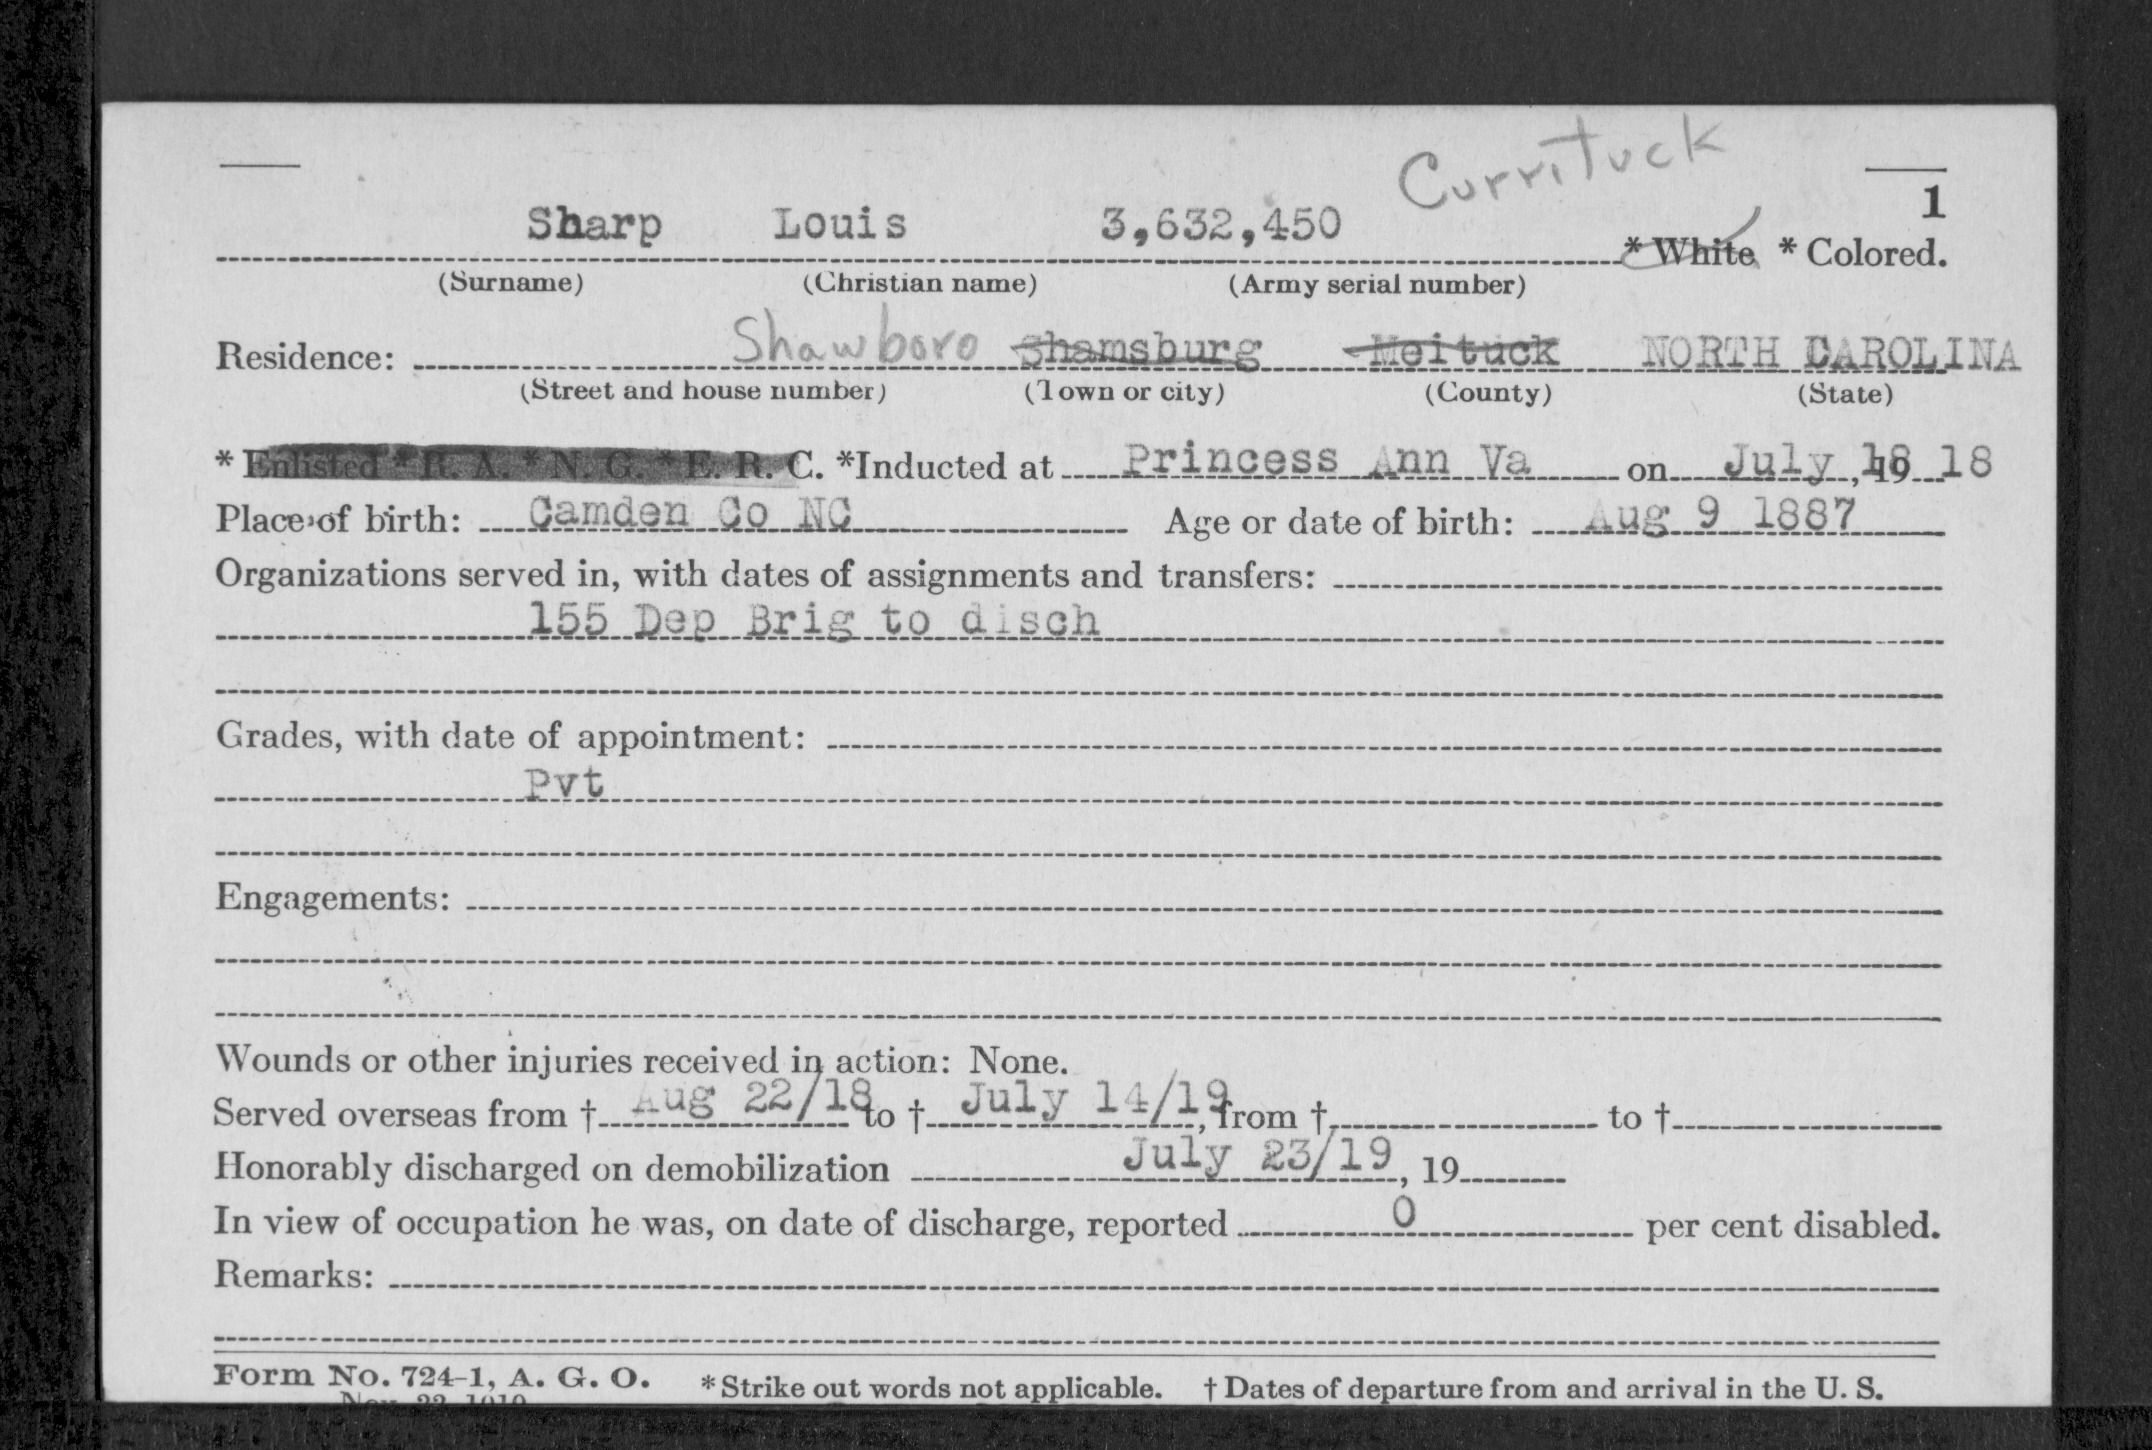 Currituck
1
Sharp Louis 3,632,450 * White * Colored.
(Surname) (Christian name) (Army serial number)
Residence: Shawboro Shamsburg Meituck NORTH CAROLINA
(Street and house number) (Town or city) (County) (State)
* Enlisted * R. A. * N. G. * E. R. C. *Inducted at Princess Ann Va on July 18, 19 18
Place of birth: Camden Co NC Age or date of birth: Aug 9 1887
Organizations served in, with dates of assignments and transfers:
155 Dep Brig to disch
Grades, with date of appointment:
Pvt
Engagements:
Wounds or other injuries received in action: None.
Served overseas from † Aug 22/18 to † July 14/19, from † to †
Honorably discharged on demobilization July 23/19, 19
In view of occupation he was, on date of discharge, reported 0 per cent disabled.
Remarks:
Form No. 724-1, A. G. O. * Strike out words not applicable. † Dates of departure from and arrival in the U. S.
Nov. 22, 1919